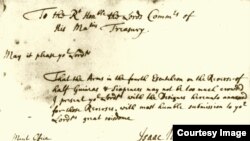 To the Rt Honble the Lords Commrs of
his Maties Treasury.
May it please yor Lordps
That the Arms in the fourth Escutcheon on the Reverses of
half Guineas & Sixpences may not be too much crowded
I present yor Lordps with the Designe hereunto annexed
for those Reverses, with most humble submission to yor
Lordps great wisdome
Mint Office
Isaac
Courtesy Image